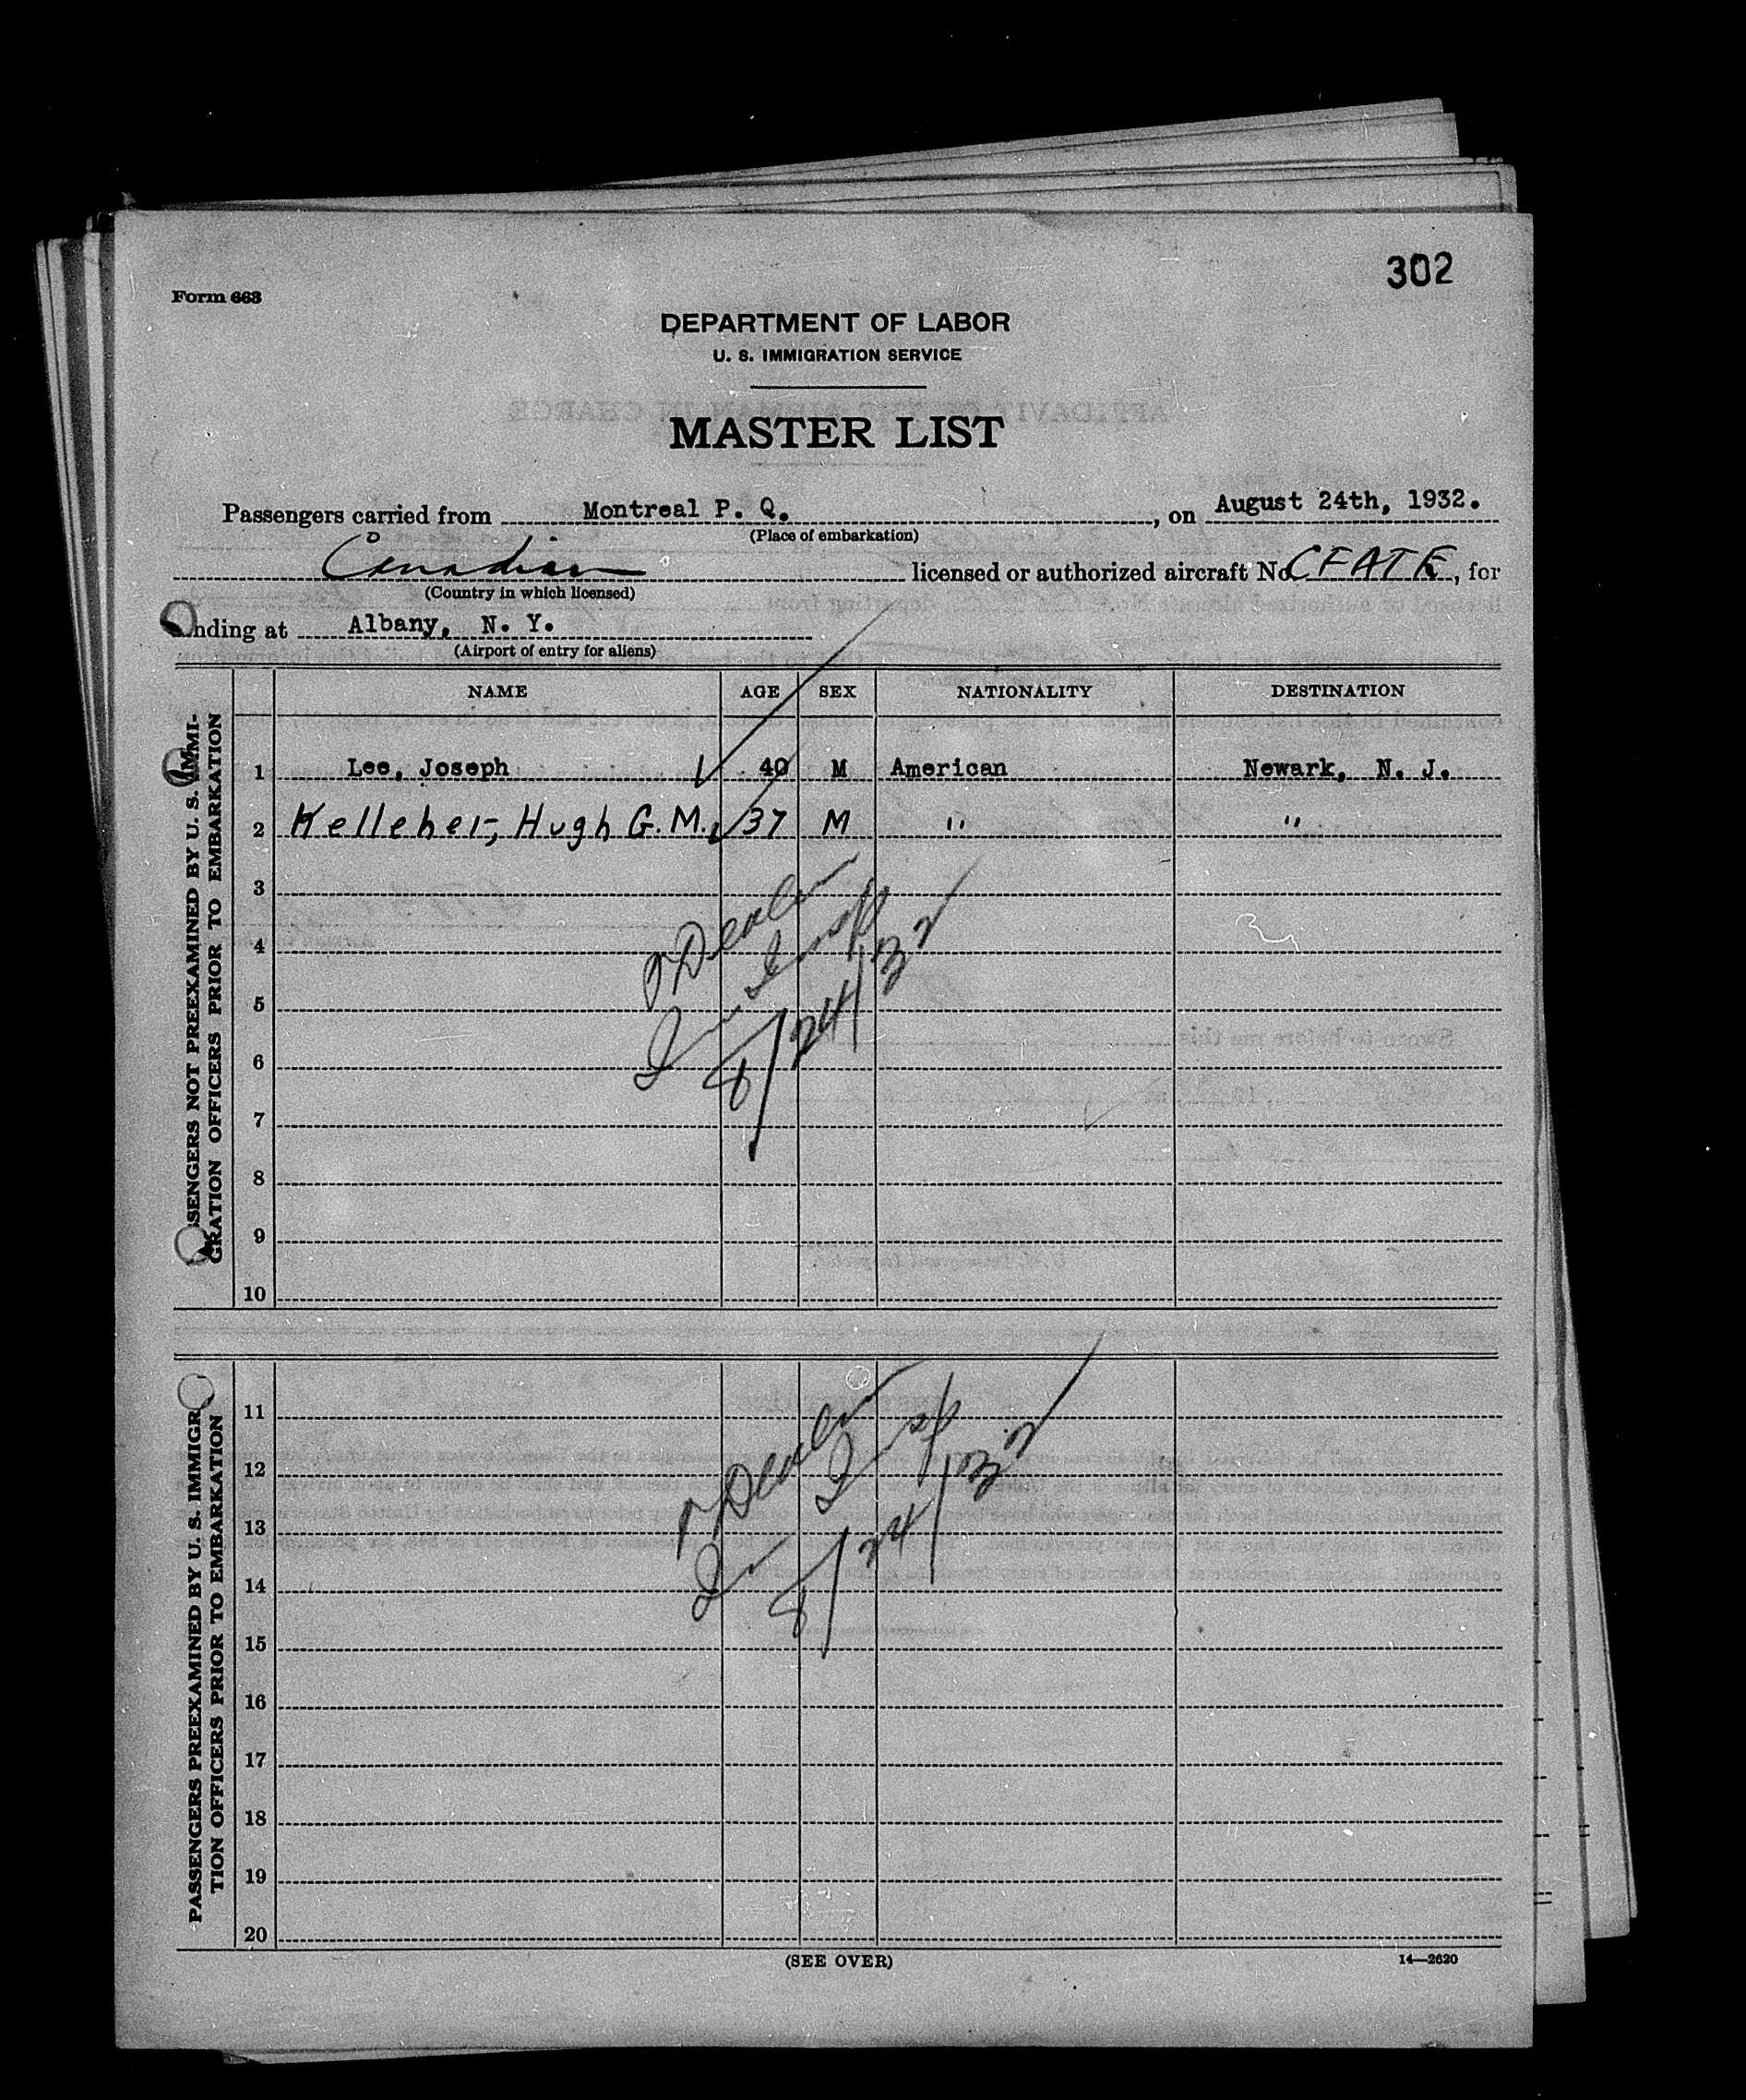 302
Form 663
DEPARTMENT OF LABOR
U. S. IMMIGRATION SERVICE
MASTER LIST
Passengers carried from Montreal P. Q. , on August 24th, 1932.
(Place of embarkation)
Canadian licensed or authorized aircraft No. CFATE, for
(Country in which licensed)
nding at Albany, N. Y.
(Airport of entry for aliens)
NAME AGE SEX NATIONALITY DESTINATION
SENGERS NOT PREEXAMINED BY U. S. IMMI-
GRATION OFFICERS PRIOR TO EMBARKATION
1 Lee, Joseph 40 M American Newark, N. J.
2 Kelleher, Hugh G. M. 37 M " "
3
4
5
6
7
8
9
10
8/24/32
PASSENGERS PREEXAMINED BY U. S. IMMIGR
TION OFFICERS PRIOR TO EMBARKATION
11
12
13
14
15
16
17
18
19
20
8/24/32
(SEE OVER)
14—2620